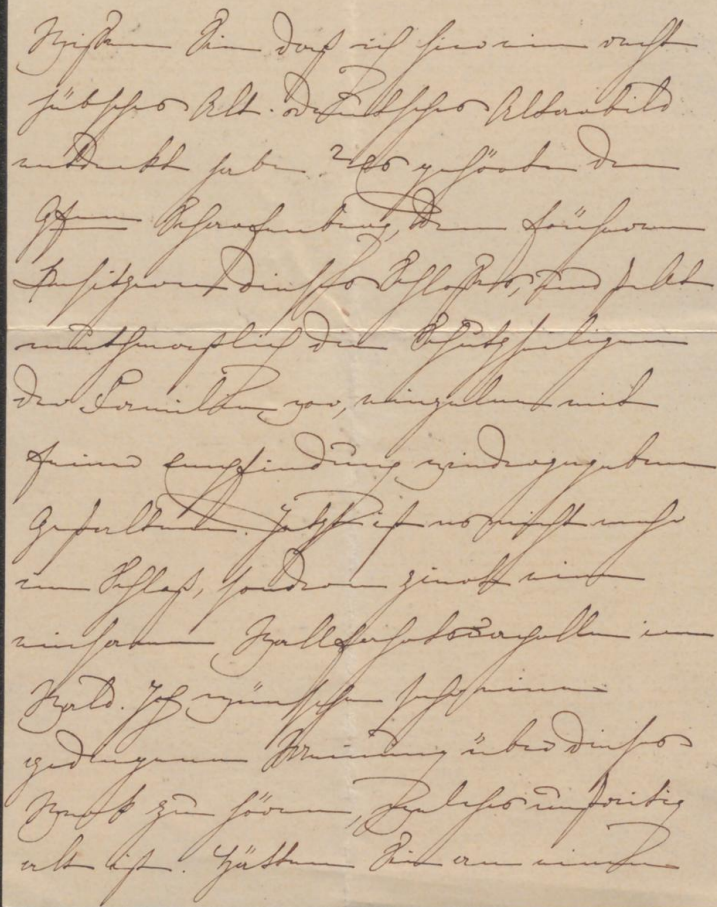 Wissen Sie daß ich hier ein recht
hübsches Alt-deutsches Altarbild
entdeckt habe? es gehörte den
Scharfenberg, den früheren
Besitzern dieses Schloßes, und stellt
muthmaßlich die Schutzheiligen
der Familie vor, einzelne mit
feiner Empfindung wiedergegebene
Gestalten. Jetzt ist es nicht mehr
im Schloß, sondern ziert eine
einsame Wallfahrtscapelle im
Wald. Ich wünschte sehr eine
gediegene Meinung über dieses
Werk zu hören, welches unstreitig
alt ist. Hätten Sie an einem